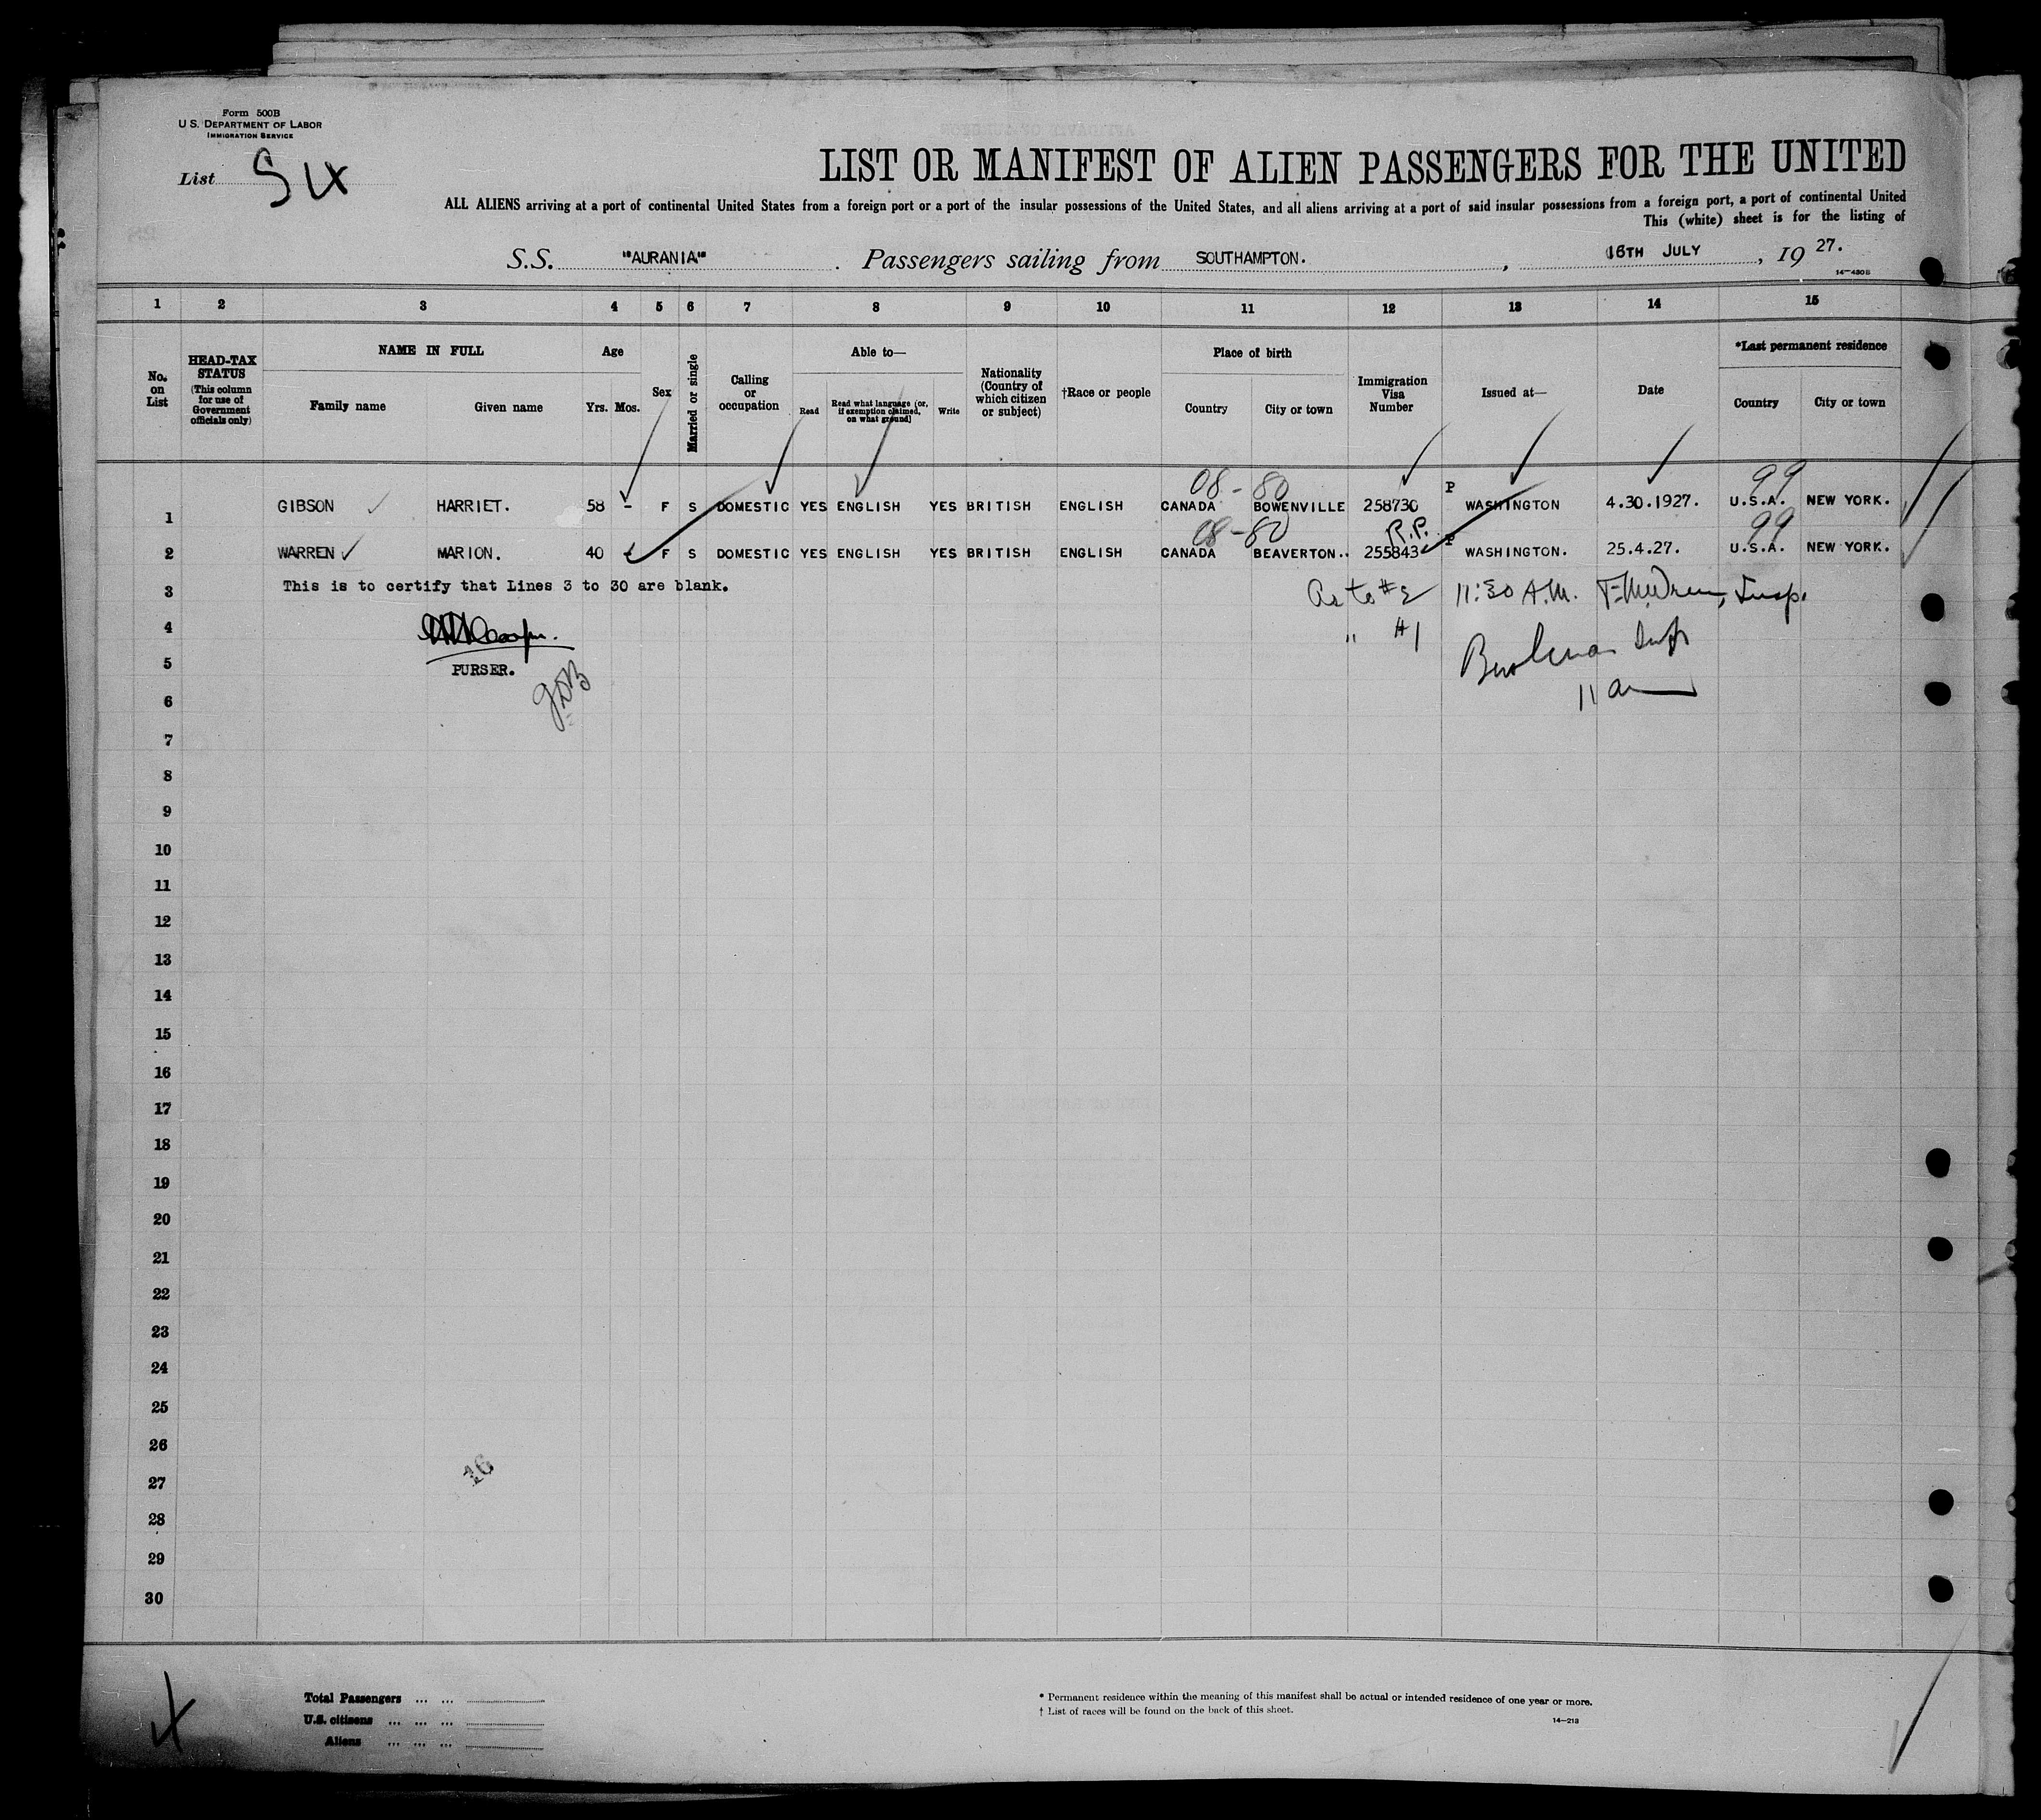 Form 500B
U.S. DEPARTMENT OF LABOR
IMMIGRATION SERVICE
List Six
LIST OR MANIFEST OF ALIEN PASSENGERS FOR THE UNITED
ALL ALIENS arriving at a port of continental United States from a foreign port or a port of the insular possessions of the United States, and all aliens arriving at a port of said insular possessions from a foreign port, a port of continental United
This (white) sheet is for the listing of
S.S. "AURANIA" . Passengers sailing from SOUTHAMPTON. , 16TH JULY , 19 27.
14—480B
1 2 3 4 5 6 7 8 9 10 11 12 13 14 15
No. on List
HEAD-TAX STATUS (This column for use of Government officials only)
NAME IN FULL
Family name Given name
Age
Yrs. Mos.
Sex
Married or single
Calling or occupation
Able to—
Read
Read what language (or, if exemption claimed, on what ground)
Write
Nationality (Country of which citizen or subject)
†Race or people
Place of birth
Country City or town
Immigration Visa Number
Issued at—
Date
*Last permanent residence
Country City or town
08-80 99
1 GIBSON HARRIET. 58 - F S DOMESTIC YES ENGLISH YES BRITISH ENGLISH CANADA BOWENVILLE 258730 P WASHINGTON 4.30.1927. U.S.A. NEW YORK.
08-80 P.P. 99
2 WARREN MARION. 40 - F S DOMESTIC YES ENGLISH YES BRITISH ENGLISH CANADA BEAVERTON.. 255843 P WASHINGTON. 25.4.27. U.S.A. NEW YORK.
3 This is to certify that Lines 3 to 30 are blank. As to #2 11:30 A.M. Insp.
4 " #1
5 PURSER.
6 11 am
7
8
9
10
11
12
13
14
15
16
17
18
19
20
21
22
23
24
25
26
16
27
28
29
30
Total Passengers ... ...
U.S. citizens ... ... ...
Aliens ... ... ...
* Permanent residence within the meaning of this manifest shall be actual or intended residence of one year or more.
† List of races will be found on the back of this sheet.
14—213